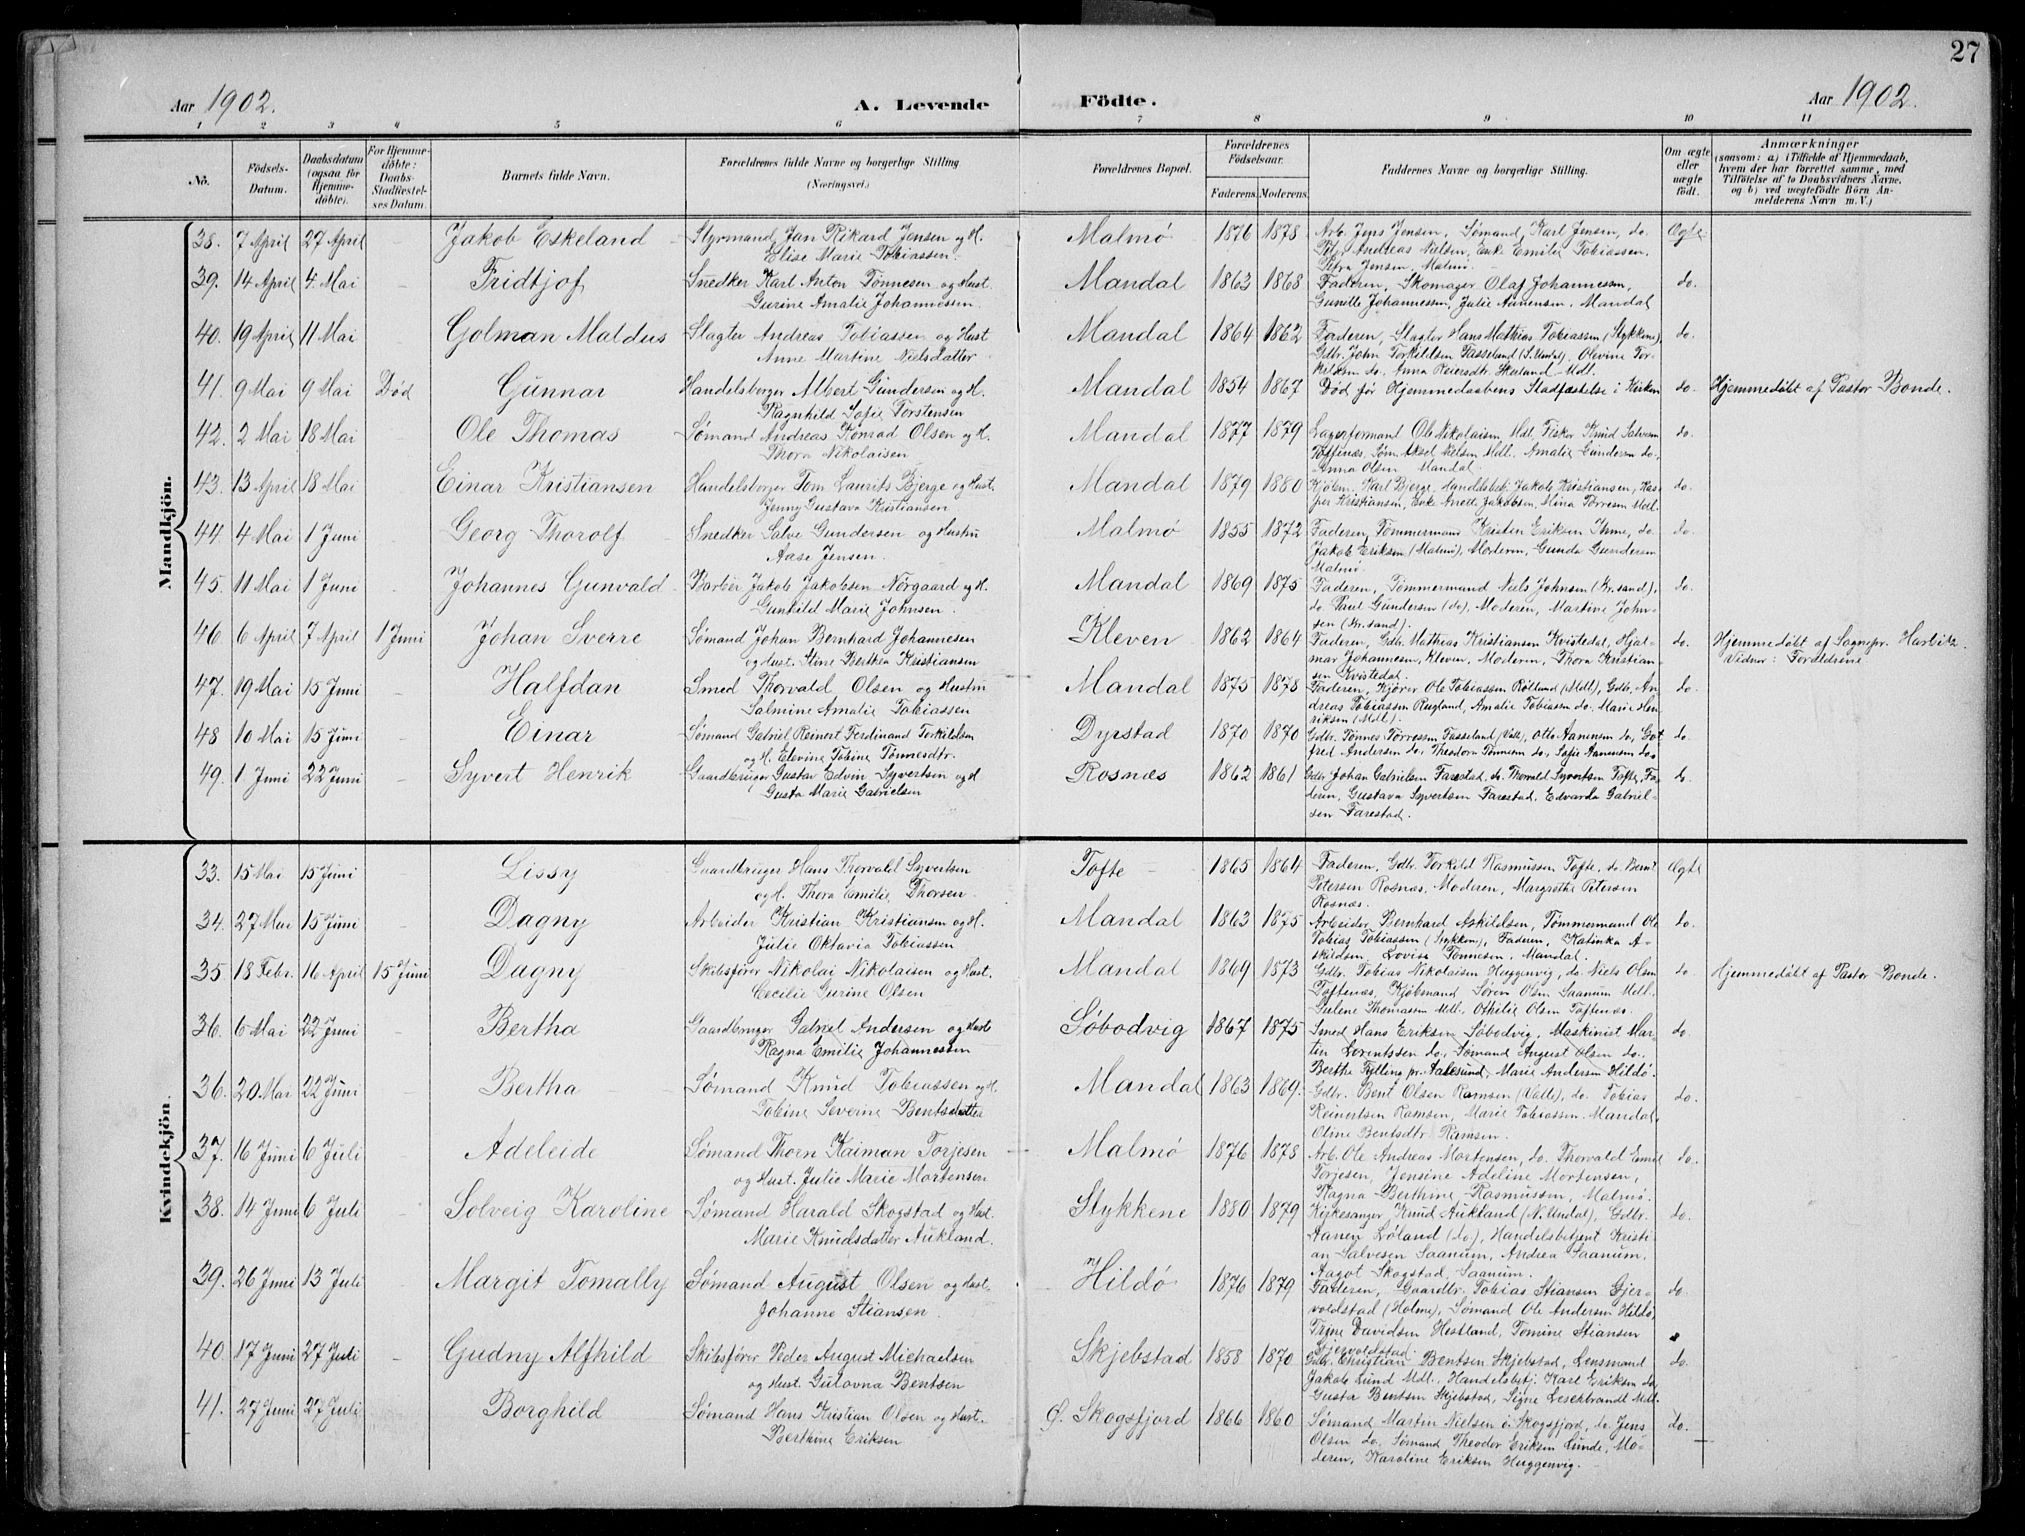 27
Aar 1902. A. Levende Födte. Aar 1902.
1 2 3 4 5 6 7 8 9 10 11
No. Födsels-Datum. Daabsdatum (ogsaa for Hjemmedöbte). For Hjemmedöbte: Daabs-Stadfæstelses Datum. Barnets fulde Navn. Forældrenes fulde Navne og borgerlige Stilling. (Næringsvei.) Forældrenes Bopæl. Forældrenes Födselsaar. Faderens. Moderens. Faddernes Navne og borgerlige Stilling. Om ægte eller uægte födt. Anmærkninger (saasom: a) i Tilfælde af Hjemmedaab, hvem der har forrettet samme, med Tilföielse af to Daabsvidners Navne, og b) ved uægtefödte Börn Anmelderens Navn m. V.)
Mandkjön.
38. 7 April 27 April - Jakob Eskeland Styrmand Jan Rikard Jensen og H. Malmø 1876 1878 Arb. Jens Jensen, Sømand Karl Jensen, do. Ægte
Elise Marie Tobiassen. Andreas Nielsen, Enke Emilie Tobiassen,
Petra Jensen, Malmø
39. 14 April 4 Mai - Fridtjof Snedker Karl Anton Tønnesen og Hust. Mandal 1863 1868 Faderen, Skomager Olaf Johannessen, do.
Gurine Amalie Johannessen. Gunelle Johannessen, Julie Aanensen, Mandal
40. 19 April 11 Mai Golman Maldus Slagter Andreas Tobiassen og Hust Mandal 1864 1862 Faderen, Slagter Hans Mathias Tobiassen (Stykkene) do.
Anne Martine Nielsdatter Gdbr. John Torkildsen Fasseland (S. Undal), Olevine Tor-
kildsen do. Anna Reiersdtr. Skeiland Mdl.
41. 9 Mai 9 Mai Død Gunnar Handelsborger Albert Gundersen og H. Mandal 1854 1867 Død før Hjemmedaabens Stadfæstelse i Kirken do. Hjemmedøbt af Pastor Bonde.
Ragnhild Sofie Torstensen
42. 2 Mai 18 Mai Ole Thomas Sømand Andreas Konrad Olsen og H. Mandal 1877 1879 Lagerformand Ole Nikolaisen Mdl. Fisker Knud Salvesen do.
Thora Nikolaisen Toftenæs, Søm. Aksel Nielsen Mdl. Amalie Gundersen do,
Anna Olsen Mandal.
43. 13 April 18 Mai Einar Kristiansen Handelsborger Tom Laurits Bjerge og Hust. Mandal 1879 1880 Kjøbm. Karl Bjerge, Handelsbetj. Jakob Kristiansen, Kas- do.
Jenny Gustava Kristiansen per Kristiansen, Enke Anette Jakobsen, Mina Torresen Mdl.
44. 4 Mai 1 Juni Georg Thorolf Snedker Salve Gundersen og Hustru Malmø 1855 1872 Faderen, Tømmermand Kristen Eriksen Ime, do. do.
Aase Jensen. Jakob Eriksen (Malmø), Moderen, Gunda Gundersen
Malmø
45. 11 Mai 1 Juni Johannes Gunvald Barber Jakob Jakobsen Nörgaard og H. Mandal 1869 1875 Faderen, Tømmermand Niels Johnsen (Kr.sand), do.
Gunhild Marie Johnsen. do Paul Gundersen (do), Moderen, Martine John-
sen (Kr.sand).
46 6 April 7 April 1 Juni Johan Sverre Sømand Johan Bernhard Johannesen Kleven 1862 1864 Faderen, Gdb. Mathias Kristiansen Kvistedal, Hjal- do. Hjemmedøbt af Sognepr. Harbitz.
og Hust. Stine Berthea Kristiansen mar Johannesen, Kleven, Moderen, Thora Kristian- Vidner: Forældrene
sen Kvistedal.
47. 19 Mai 15 Juni - Halfdan Smed Thorvald Olsen og Hustru Mandal 1875 1878 Faderen, Kjører Ole Tobiassen Rølland (Mdl.), Gdb. An- do.
Salmine Amalie Tobiassen dreas Tobiassen Rugland, Amalie Tobiassen do. Marie Hen-
riksen (Mdl.).
48 10 Mai 15 Juni - Einar Sømand Gabriel Reinert Ferdinand Torkildsen Dyrstad 1870 1870 Gdbr. Tønnes Torresen Fasseland (Valle), Otto Aanensen do, Got do.
og H. Elevine Tobine Tønnesdtr. fred Andersen do, Theodora Tønnesen do, Sofie Aanensen do
49. 1 Juni 22 Juni - Syvert Henrik Gaardbruger Gustav Edvin Syvertsen og H Rosnæs 1862 1861 Gdbr. Johan Gabrielsen Farestad, do. Thorvald Syvertsen Tofte, Fa- do.
Gusta Marie Gabrielsen deren, Gustava Syvertsen Farestad, Edvarda Gabriel-
sen Farestad.
Kvindekjön.
33. 15 Mai 15 Juni Lissy Gaardbruger Hans Thorvald Syvertsen Tofte 1865 1864 Faderen, Gdb. Torkild Rasmussen Tofte, do Bernt Ægte
og H. Thora Emilie Thorsen. Petersen Rosnæs. Moderen, Margrethe Petersen
Rosnæs.
34. 27 Mai 15 Juni - Dagny Arbeider Kristian Kristiansen og H. Mandal 1863 1875 Arbeider Bernhard Askildsen, Tømmermand Ole do.
Julie Oktavia Tobiassen Tobias Tobiassen (Stykken), Faderen, Katinka A-
skildsen, Lovise Tønnesen, Mandal.
35 18 Febr. 16 April 15 Juni Dagny Skibsfører Nikolai Nikolaisen og Hust. Mandal 1869 1873 Gdbr. Tobias Nikolaisen Huggenvig, do Niels Olsen do. Hjemmedøbt af Pastor Bonde.
Cecilie Gurine Olsen Toftenæs, Kjøbmand Søren Olsen Saanum Mdl.
Thomassen Mdl., Othilie Olsen Toftenæs.
36. 6 Mai 22 Juni - Bertha Gaardbruger Gabriel Andersen og Hust Søbodvig 1867 1875 Smed Hans Eriksen Søbodvig, Maskinist Mar- do.
Ragna Emilie Johannessen tin Lorentssen do, Sømand August Olsen do.
Berthe Fylling pr. Aalesund, Marie Andersen Hildø.
36. 20 Mai 22 Juni Bertha Sømand Knud Tobiassen og H. Mandal 1863 1869. Gdbr. Bent Olsen Ramsen (Valle), do. Tobias do.
Tobine Severine Bentsdatter Reinertsen Ramsen, Marie Tobiassen Mandal,
Oline Bentsdtr Ramsen.
37. 16 Juni 6 Juli Adeleide Sømand Thorn Kaiman Torjesen Malmø 1876 1878 Arb. Ole Andreas Mortensen, do. Thorvald Emil do.
og Hust. Julie Marie Mortensen Torjesen, Jensine Adeline Mortensen,
Ragna Berthine Rasmussen, Malmø.
38. 14 Juni 6 Juli Solveig Karoline Sømand Harald Skogstad og Hust. Stykkene 1880 1879 Kirkesanger Knud Aukland (N. Undal), Gdbr. do.
Marie Knudsdatter Aukland. Aanen Løland (do), Handelsbetjent Kristi
an Salvesen Saanum, Andrea Saanum.
Aagot Skogstad Saanum.
39. 26 Juni 13 Juli Margit Tomally Sømand August Olsen og Hust. Hildø 1876 1879 Faderen, Gaardbr. Tobias Stiansen Gjer- do.
Johanne Stiansen. voldstad (Holme), Sømand Ole Andersen Hildø,
Trine Davidsen Hestland, Tomine Stiansen
Gjervoldstad.
40. 17 Juni 27 Juli - Gudny Alfhild Skibsfører Peder August Michaelsen Skjebstad 1858 1870 Gdb. Christian Bentsen Skjebstad, Lensmand do.
og Hust. Gulovna Bentsen Jakob Lund Mdl., Handelsbetj: Karl Eriksen do
Gusta Bentsen Skjebstad, Signe Leschbrandt Mdl.
41. 27 Juni 27 Juli Borghild Sømand Hans Kristian Olsen og Hust. Ø. Skogsfjord 1866 1860 Sømand Martin Nielsen i Skogsfjord, do. Jens do.
Berthine Eriksen Olsen do. Sømand Theodor Eriksen Lunde, Mo-
deren, Karoline Eriksen Huggenvig.